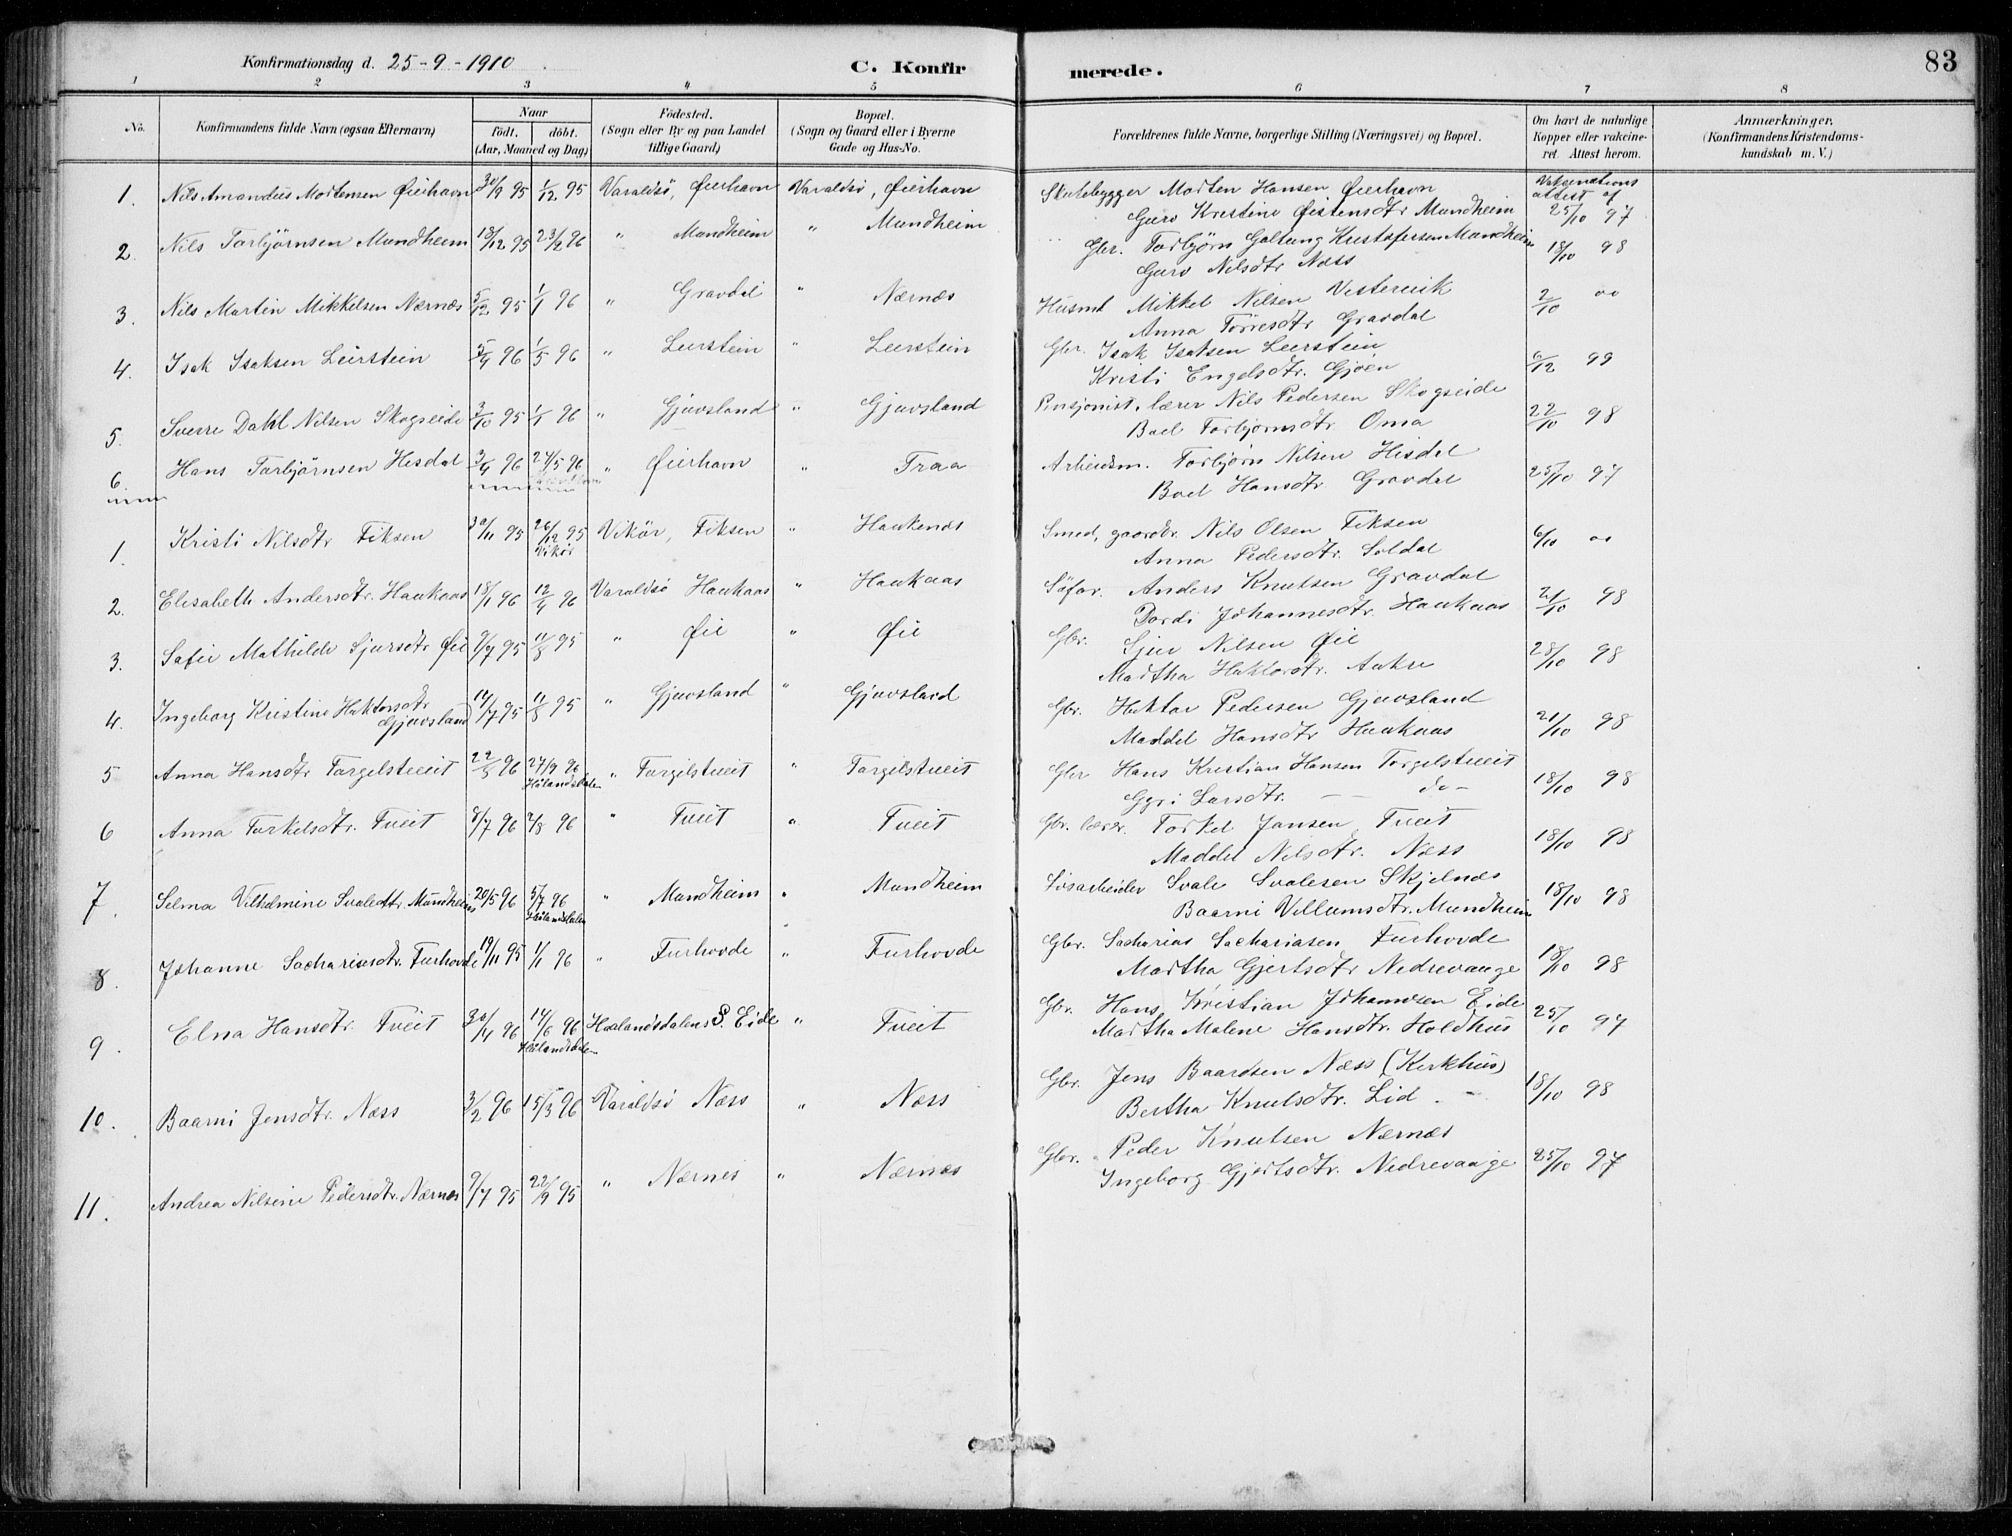 Konfirmationsdag d. 25-9-1910
C. Konfirmerede.
83
1 2 3 4 5 6 7 8
No. Konfirmandens fulde Navn (ogsaa Efternavn) Naar födt. döbt. (Aar, Maaned og Dag) Födested. (Sogn eller By og paa Landet tillige Gaard) Bopæl. (Sogn og Gaard eller i Byerne Gade og Hus-No. Forældrenes fulde Navne, borgerlige Stilling (Næringsvei) og Bopæl. Om havt de naturlige Kopper eller vakcineret. Attest herom. Anmærkninger. (Konfirmandens Kristendomskundskab m. V.)
1. Nils Amandus Mortensen Øierhavn 30/9 95 1/12 95 Varaldsö, Øierhavn Varaldsö, Øierhavn Skutebygger Morten Hansen Øierhavn Vakcinations attest af
Guro Kristine Øistensdtr Mundheim 25/10 97
2. Nils Torbjørnsen Mundheim 18/12 95 23/2 96 " Mundheim " Mundheim Gbr. Torbjørn Galtung Kristofersen Mundheim 18/10 98
Guro Nilsdtr Næss
3. Nils Martin Mikkelsen Nærnes 5/12 95 1/1 96 " Gravdal " Nærnes Husmd Mikkel Nilsen Vestervik 2/10 00
Anna Torresdtr Gravdal
4. Isak Isaksen Leirstein 5/4 96 1/5 96 " Leirstein " Leirstein Gbr. Isak Isaksen Leirstein 6/12 99
Kristi Engelsdtr. Gjøen
5. Sverre Dahl Nilsen Skogseide 3/10 95 1/1 96 " Gjuvsland " Gjuvsland Pensjonist. lærer Nils Pedersen Skogseide 22/10 98
Boel Torbjørnsdtr Oma
6. Hans Torbjørnsen Hisdal 3/4 96 27/5 96 " Øierhavn " Traa Arbeidsm. Torbjørn Nilsen Hisdal 25/10 97
Boel Hansdtr Gravdal
1. Kristi Nilsdtr Fiksen 30/11 95 26/12 95 Vikör, Fiksen " Haukenes Smed, gaardbr. Nils Olsen Fiksen 6/10 00
Vikör Anna Pedersdtr. Soldal
2. Elisabeth Andersdtr. Haukaas 18/1 96 12/4 96 Varaldsö Haukaas " Haukaas Söfar. Anders Knutsen Gravdal 21/10 98
Dordi Johannesdtr. Haukaas
3. Safie Mathilde Sjursdtr Øie 9/7 95 11/8 95 " Øie " Øie Gbr. Sjur Nilsen Øie 28/10 98
Martha Haktorsdtr. Aakre
4. Ingeborg Kristine Haktorsdtr Gjuvsland 14/7 95 11/8 95 " Gjuvsland " Gjuvsland Gbr. Haktor Pedersen Gjuvsland 21/10 98
Maddel Hansdtr Haukaas
5 Anna Hansdtr Torgelstveit 22/5 96 27/9 96 " Torgilstveit " Torgelstveit Gbr Hans Kristian Hansen Torgelstveit 18/10 98
Hålandsdalen Gyri Larsdtr. — do -
6 Anna Torkelsdtr. Tveit 8/7 96 2/8 96 " Tveit " Tveit Gbr. lærer. Torkel Jansen Tveit 18/10 98
Maddel Nilsdtr. Næss
7. Selma Vilhelmine Svaledtr. Mundheim 20/5 96 5/7 96 " Mundheim " Mundheim Løsarbeider Svale Svalesen Skjelnes 18/10 98
Hålandsdalen Baarni Villumsdtr. Mundheim
8. Johanne Sachariasdtr. Furhovde 19/11 95 1/1 96 " Furhovde " Furhovde Gbr. Sacharias Sachariasen Furhovde 18/10 98
Martha Gjertsdtr Nedrevaage
9. Elna Hansdtr. Tveit 30/4 96 14/6 96 Haalandsdalens S. Eide " Tveit Gbr. Hans Kristian Johannesen Eide 25/10 97
Hålandsdalen Martha Malene Hansdtr. Holdhus
10. Baarni Jensdtr. Næss 3/2 96 15/3 96 Varaldsö Næss " Næss Gbr. Jens Baardsen Næss (Kirkhus) 18/10 98
Bertha Knutsdtr. Lid - -
11. Andrea Nilsine Pedersdtr. Nærnes 9/7 95 22/9 95 " Nærnes " Nærnes Gbr. Peder Knutsen Nærnes 25/10 97
Ingeborg Gjertsdtr. Nedrevaage